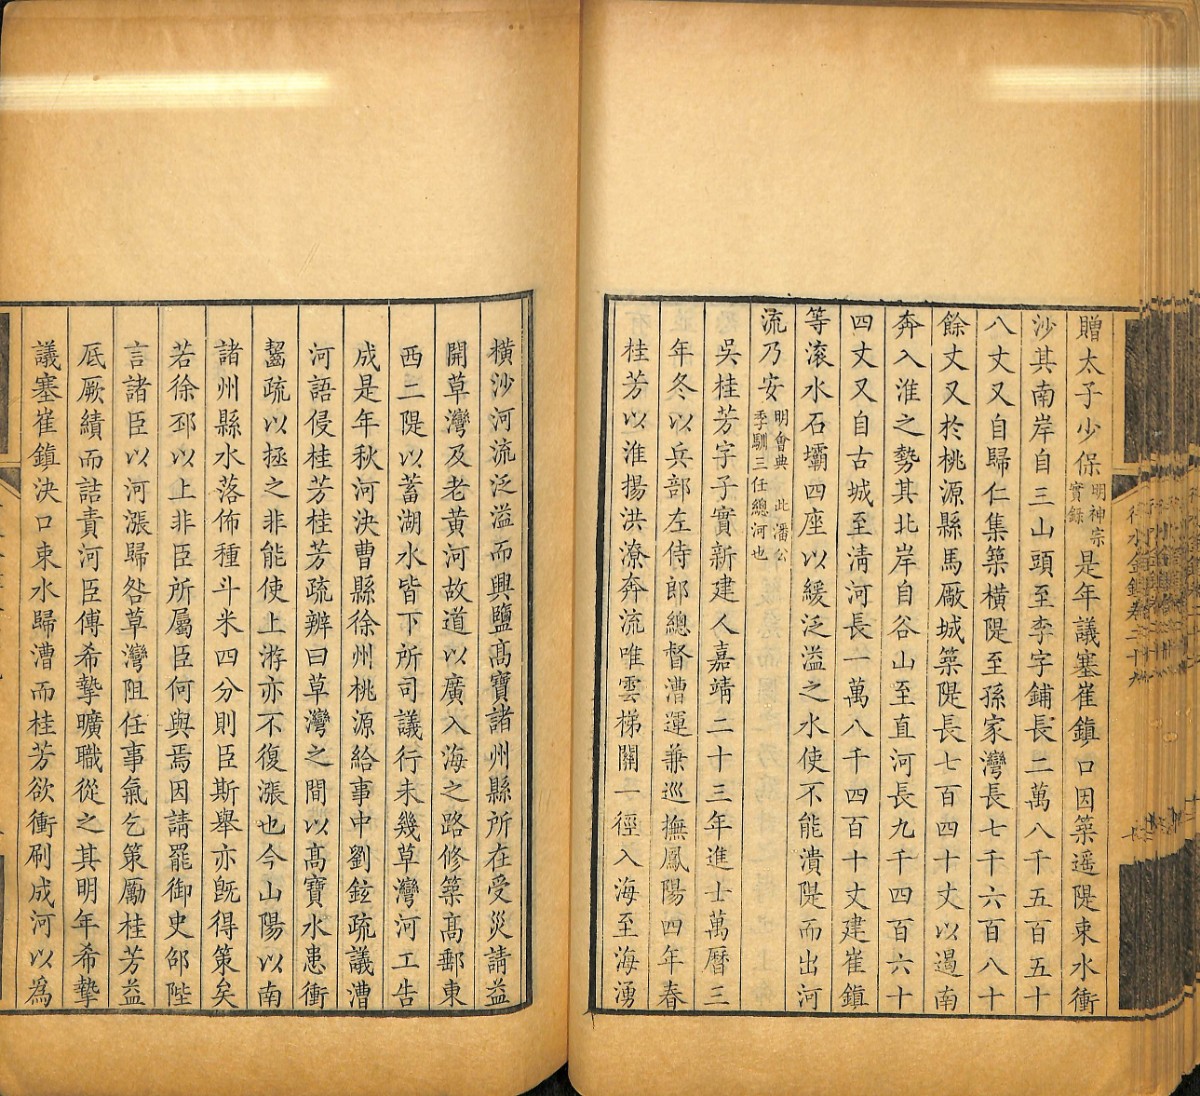 贈太子少保明神宗實錄是年議塞崔鎮口因築遥隄束水衝
沙其南岸自三山頭至李字鋪長二萬八千五百五十
八丈又自歸仁集築橫隄至孫家灣長七千六百八十
餘丈又於桃源縣馬厰城築隄長七百四十丈以遏南
奔入淮之勢其北岸自谷山至直河長九千四百六十
四丈又自古城至清河長一萬八千四百十丈建崔鎮
等滚水石壩四座以緩泛溢之水使不能潰隄而出河
流乃安明會典 此潘公季馴三任總河也
吳桂芳字子實新建人嘉靖二十三年進士萬曆三
年冬以兵部左侍郎總督漕運兼巡撫鳳陽四年春
桂芳以淮揚洪潦奔流唯雲梯關一徑入海至海湧
橫沙河流泛溢而興鹽高寶諸州縣所在受災請益
開草灣及老黃河故道以廣入海之路修築高郵東
西二隄以蓄湖水皆下所司議行未幾草灣河工告
成是年秋河決曹縣徐州桃源給事中劉鉉疏議漕
河語侵桂芳桂芳疏辨曰草灣之間以高寶水患衝
齧疏以拯之非能使上游亦不復漲也今山陽以南
諸州縣水落佈種斗米四分則臣斯舉亦既得策矣
若徐邳以上非臣所屬臣何與焉因請罷御史邵陛
言諸臣以河漲歸咎草灣阻任事氣乞策勵桂芳益
厎厥績而詰責河臣傅希摯曠職從之其明年希摯
議塞崔鎮決口束水歸漕而桂芳欲衝刷成河以為
行水金鑑卷二十九